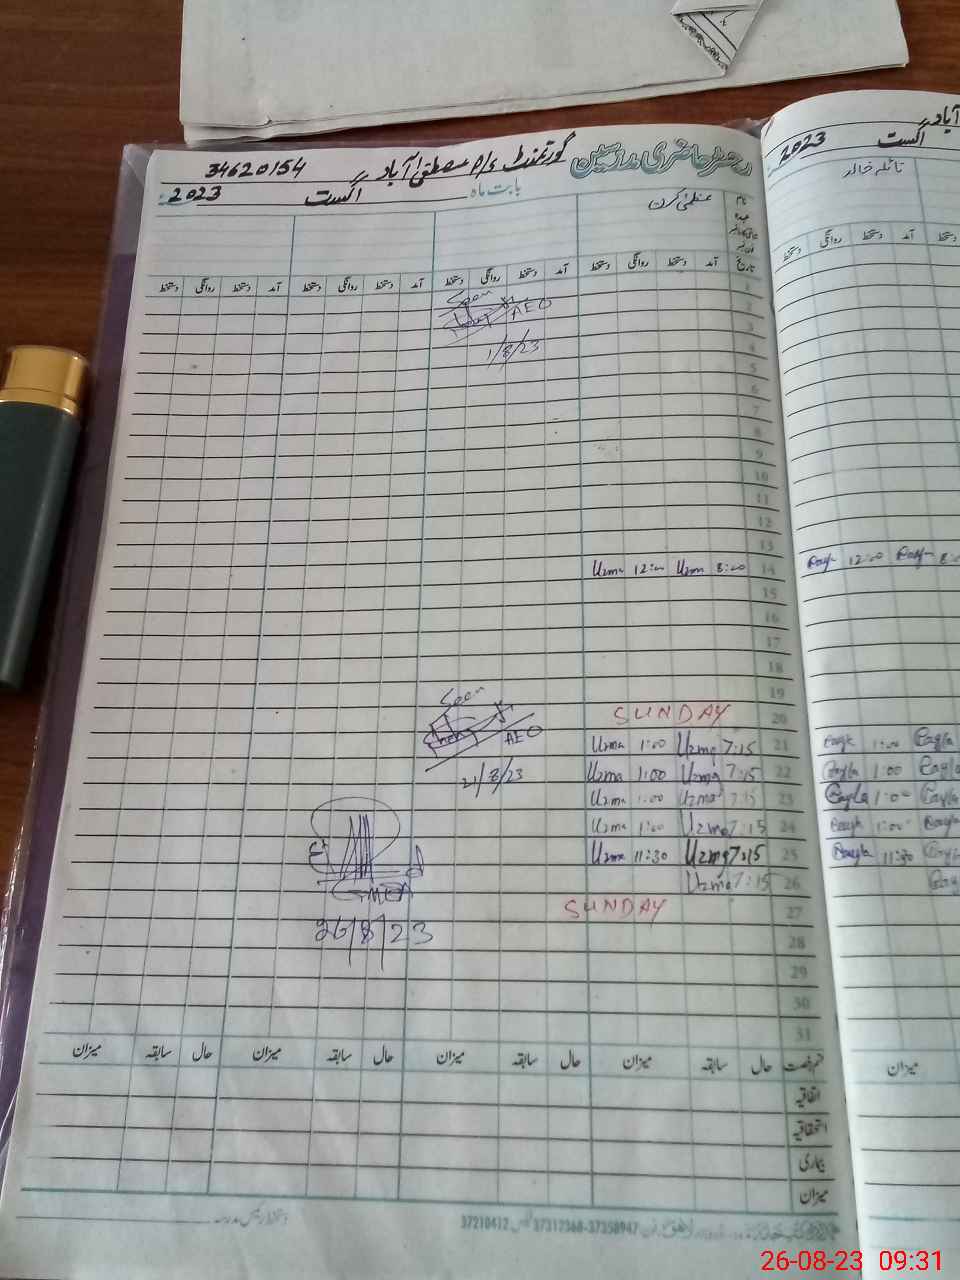 رجسٹر حاضری مدرسین گورنمنٹ P/S مصطفیٰ آباد 34620154
بابت ماہ اگست 2023
نام عظمیٰ کرن
عہدہ
تاریخ آمد دستخط روانگی دستخط آمد دستخط روانگی دستخط آمد دستخط روانگی دستخط آمد دستخط روانگی دستخط
1
2 Seen
3 AEO
4 1/8/23
5
6
7
8
9
10
11
12
13
14 8:00 Uzma 12:00 Uzma
15
16
17
18
19 Seen
20 SUNDAY
21 7:15 Uzma 1:00 Uzma AEO
22 7:15 Uzma 1:00 Uzma 21/8/23
23 7:15 Uzma 1:00 Uzma
24 7:15 Uzma 1:00 Uzma
25 7:15 Uzma 11:30 Uzma
26 7:15 Uzma
27 SUNDAY
28 26/8/23
29
30
31
قسم رخصت حال سابقہ میزان حال سابقہ میزان حال سابقہ میزان حال سابقہ میزان
اتفاقیہ
استحقاقیہ
بیماری
میزان
دستخط رئیس مدرسہ
37210412 37312368-37350947
آباد
اگست 2023
نائلہ خالد
دستخط آمد دستخط روانگی دستخط
8:00 12:00
1:00
1:00
1:00
1:00
11:30
میزان
26-08-23 09:31